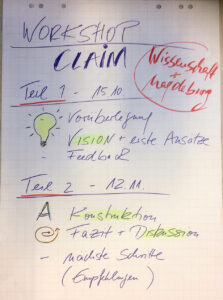 WORKSHOP
CLAIM
Wissenschaft
+
Teil 1 - 15.10
- Vorüberlegung
- VISION + erste Ansätze
- Feedback
Teil 2 - 12.11.
Konstruktion
Fazit + Diskussion
- nächste Schritte
(Empfehlungen)